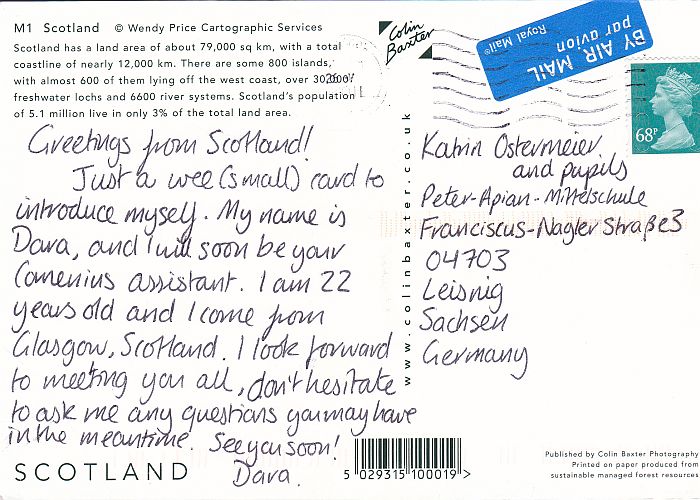 M1 Scotland © Wendy Price Cartographic Services
Scotland has a land area of about 79,000 sq km, with a total
coastline of nearly 12,000 km. There are some 800 islands,
with almost 600 of them lying off the west coast, over 30,000
freshwater lochs and 6600 river systems. Scotland's population
of 5.1 million live in only 3% of the total land area.
Greetings from Scotland!
Just a wee (small) card to
introduce myself. My name is
Dara, and I will soon be your
Comenius assistant. I am 22
years old and I come from
Glasgow, Scotland. I look forward
to meeting you all, don't hesitate
to ask me any questions you may have
in the meantime. See you soon!
Dara.
SCOTLAND
5 029315 100019 >
www.colinbaxter.co.uk
Colin
Baxter
BY AIR MAIL
par avion
Royal Mail®
68P
Katrin Ostermeier
and pupils
Peter-Apian-Mittelschule
Franciscus-Nagler Straße 3
04703
Leisnig
Sachsen
Germany
Published by Colin Baxter Photography
Printed on paper made from
sustainable managed forest resources